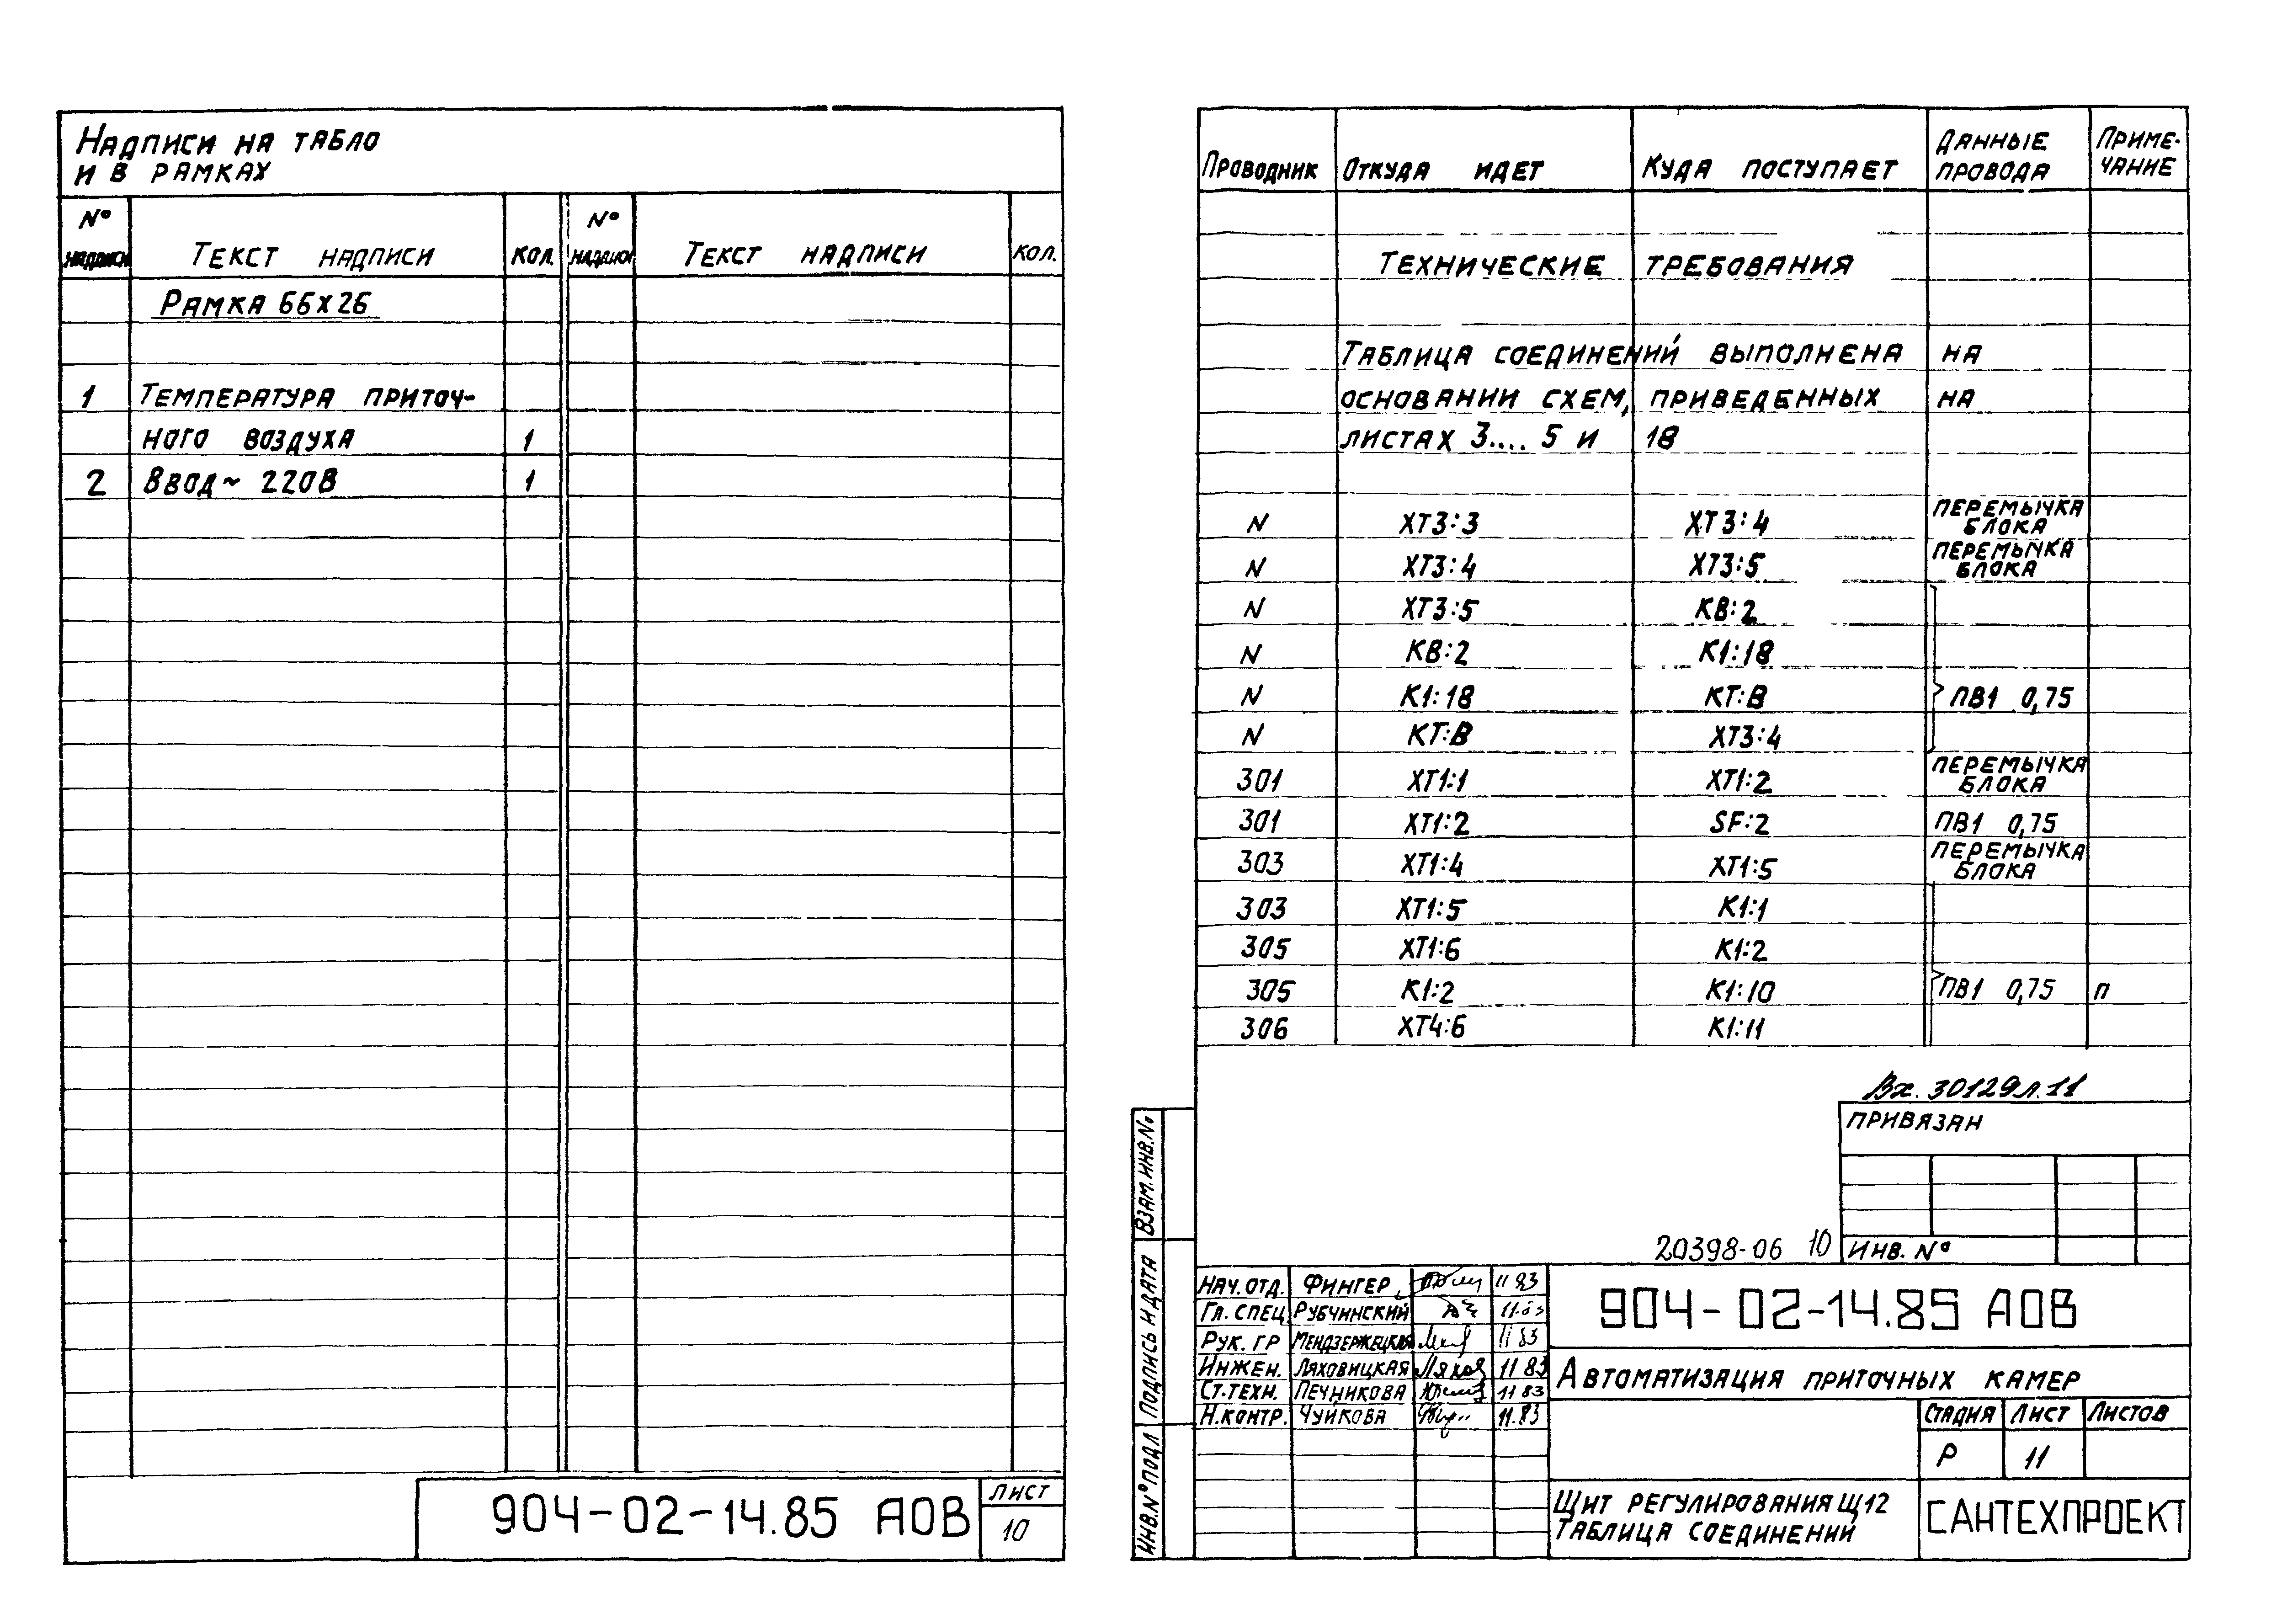 Надписи на табло
и в рамках
№ надписи Текст надписи кол. № надписи Текст надписи кол.
Рамка 66х26
1 Температура приточ-
ного воздуха 1
2 Ввод ~ 220В 1
904-02-14.85 АОВ
Лист
10
Проводник Откуда идет Куда поступает Данные провода Приме-чание
Технические требования
Таблица соединений выполнена на
основании схем, приведенных на
листах 3.... 5 и 18
N ХТ3:3 ХТ3:4 перемычка блока
N ХТ3:4 ХТ3:5 перемычка блока
N ХТ3:5 КВ:2
N КВ:2 К1:18
N К1:18 КТ:В ПВ1 0,75
N КТ:В ХТ3:4
301 ХТ1:1 ХТ1:2 перемычка блока
301 ХТ1:2 SF:2 ПВ1 0,75
303 ХТ1:4 ХТ1:5 перемычка блока
303 ХТ1:5 К1:1
305 ХТ1:6 К1:2
305 К1:2 К1:10 ПВ1 0,75 п
306 ХТ4:6 К1:11
Вх. 30129л.11
Привязан
20398-06 10
Инв. №
Взам. инв. №
Подпись и дата
Инв. № подл
Нач. отд. Фингер 11 83
Гл. спец Рубчинский 11.83
Рук. гр Мендзержецкая 11 83
Инжен. Ляховицкая 11 83
Ст. техн. Печникова 11 83
Н. контр. Чуйкова 11.83
904-02-14.85 АОВ
Автоматизация приточных камер
Стадия Лист Листов
Р 11
Щит регулирования Щ12
Таблица соединений
САНТЕХПРОЕКТ